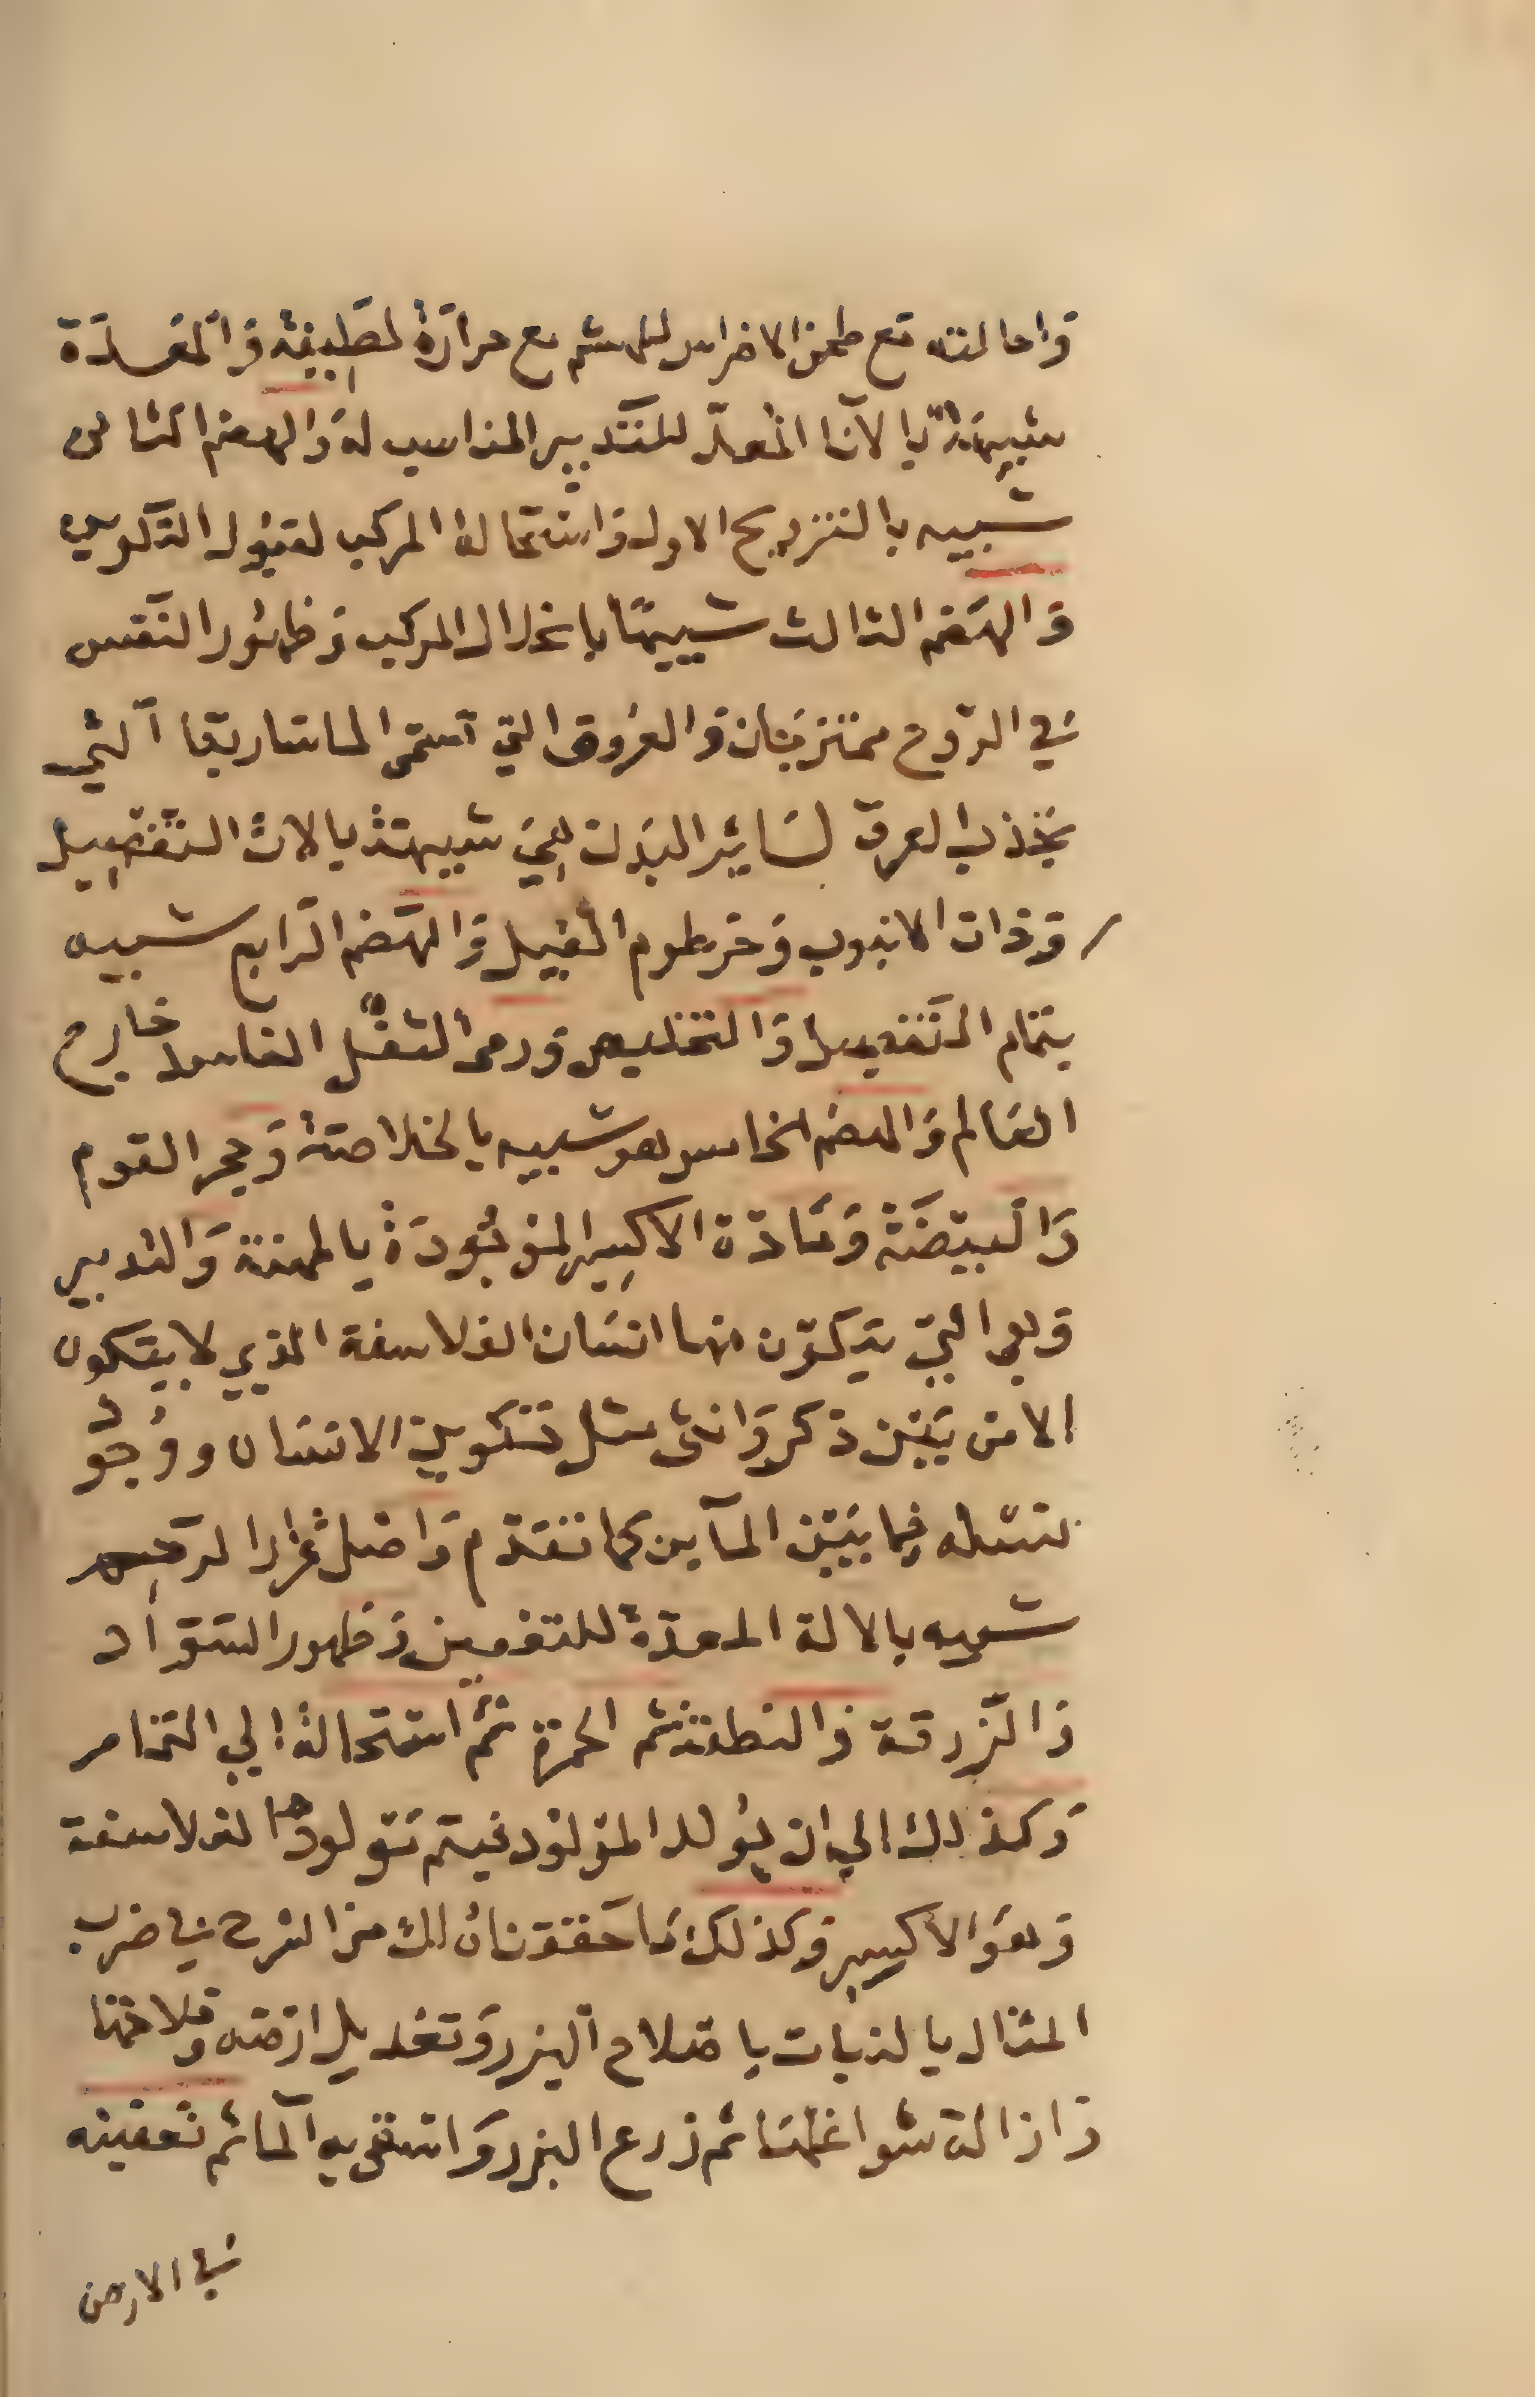 واحالته مع طحن الاضراس للهشم مع حرارة لطيفة والمعدة
شبيهة بالانا المعد للتدبير المناسب له والهضم الثانى
شبيه بالتزويج الاول واستحالة المركب لقبول التكوين
والهضم الثالث شبيها بانحلال المركب وظهور النفس
في الروح ممتزجان والعروق التي تسمى الماساريقا التي
تجذب العرق لسائر البدن هي شبيهة بالات التفصيل
وذات الانبوب وخرطوم الفيل والهضم الرابع شبيه
بتمام التفصيل والتخليص ورمى الثفل الفاسد خارج
العالم والهضم الخامس هو شبيه بالخلاصة وحجر القوم
والبيضة ومادة الاكسير الموجودة بالمهنة والتدبير
وهي التي يتكون منها انسان الفلاسفة الذي لا يتكون
الا من بين ذكر وانثى مثل تكوين الانسان ووجود
نسله فيما بين المآين كما تقدم واصل قرار الرحم
شبيه بالالة المعدة للتعفين وظهور السواد
والزرقة والنطفة ثم الحمرة ثم استحالة الي التخامر
وكذلك الي ان يولد المولود فيتم مولود الفلاسفة
وهو الاكسير وكذلك ما حققونا لك من الشرح في ضرب
المثال بالنبات باصلاح البزر وتعديل ارضه وفلاحتها
وازالة شواغلها ثم زرع البزر واسقيه الما ثم تعفينه
في الارض